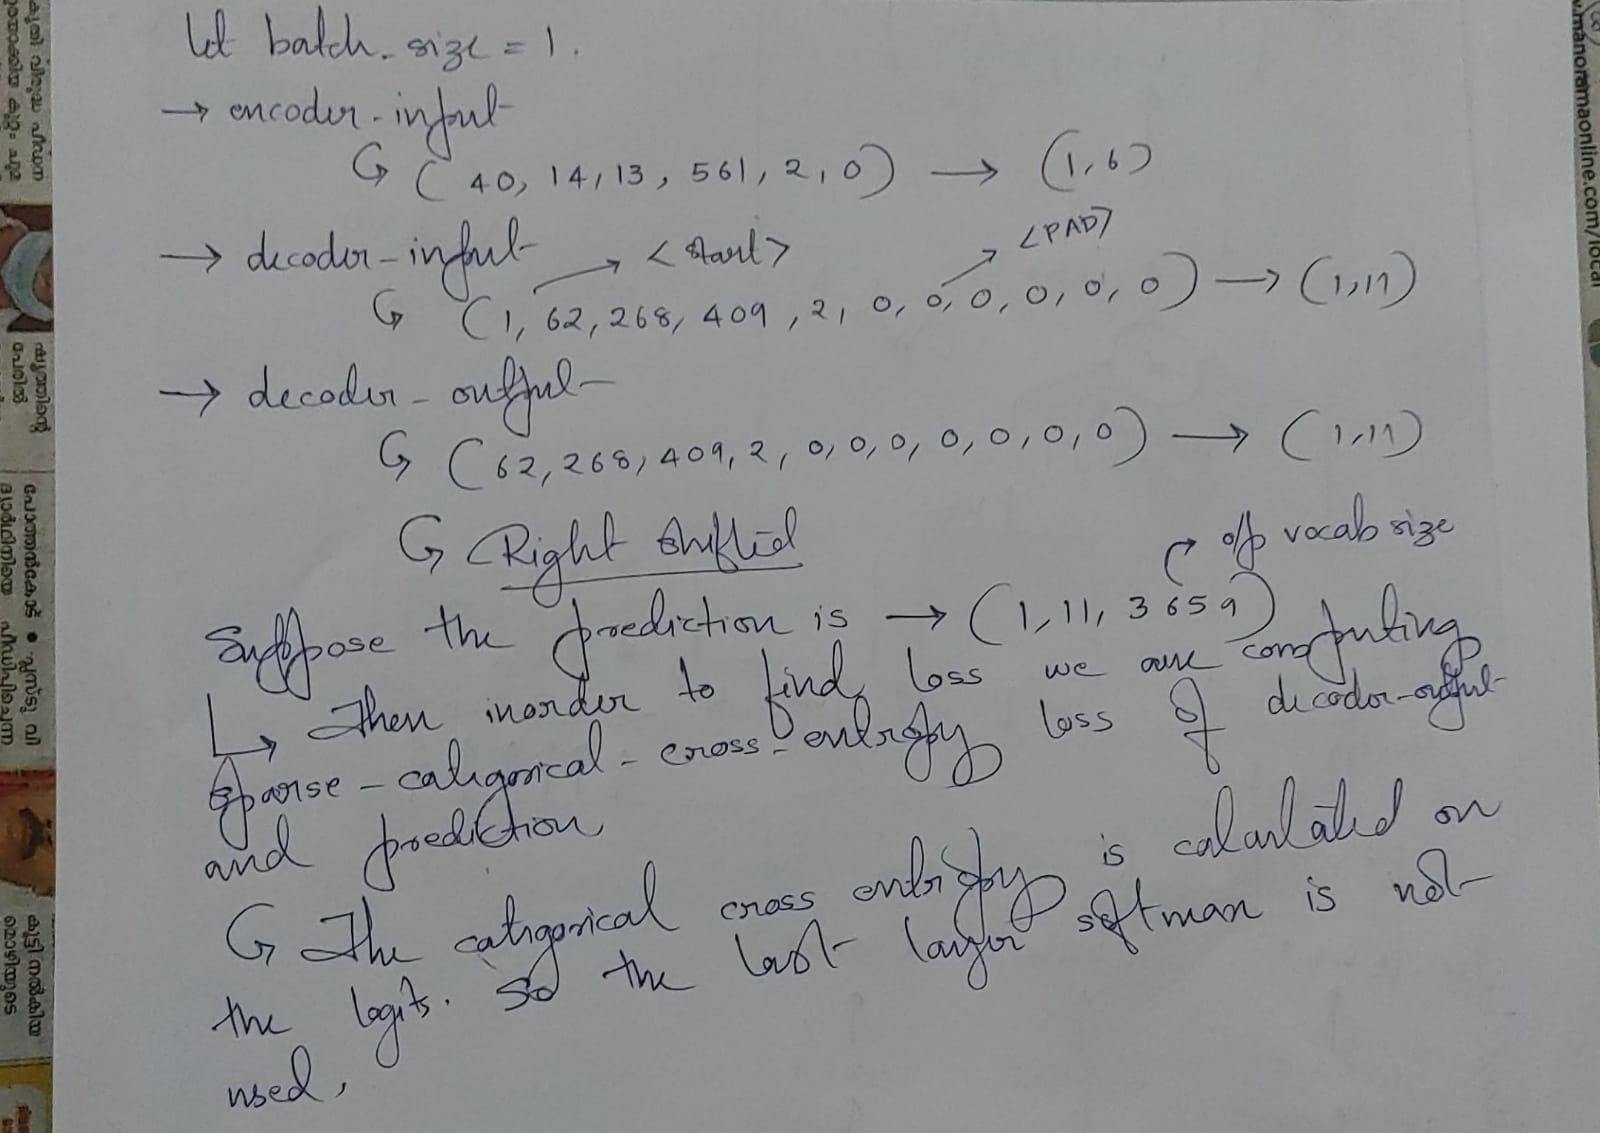 Let batch_size = 1.
→ encoder-input
↳ (40, 14, 13, 561, 2, 0) → (1,6)
→ decoder-input <start> <PAD>
↳ (1, 62, 268, 409, 2, 0, 0, 0, 0, 0, 0) → (1,11)
→ decoder-output
↳ (62, 268, 409, 2, 0, 0, 0, 0, 0, 0, 0) → (1,11)
↳ Right shifted
o/p vocab size
Suppose the prediction is → (1, 11, 3659)
↳ Then inorder to find loss we are computing
Sparse-categorical-cross-entropy loss of decoder-output
and prediction
↳ The categorical cross entropy is calculated on
the logits. So the last layer softmax is not
used,
manoramaonline.com/local